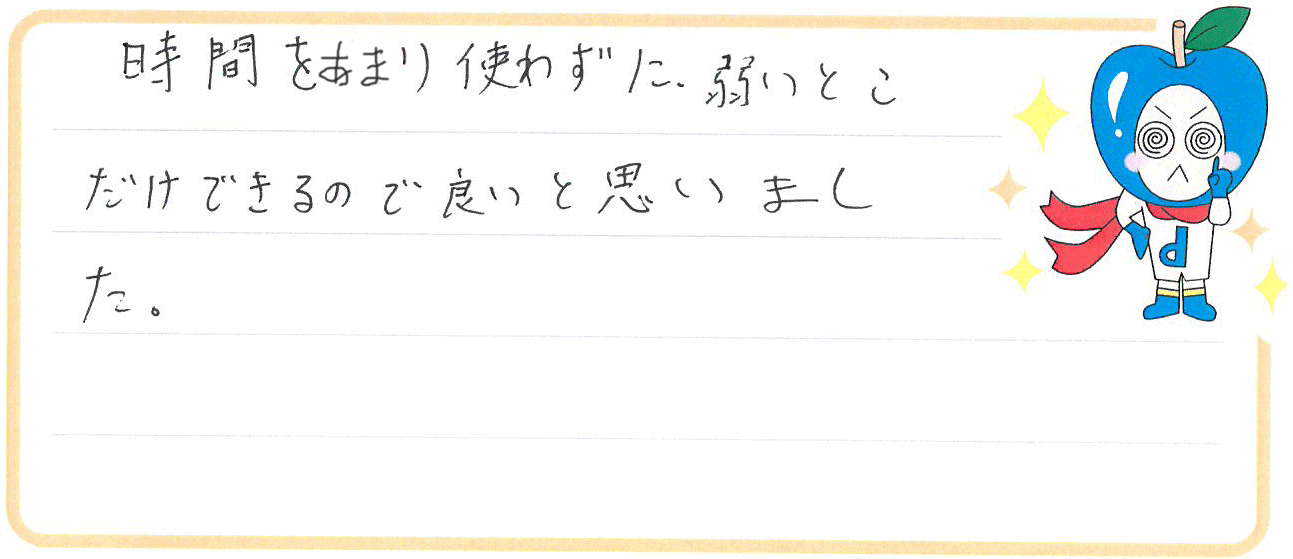 時間をあまり使わずに、弱いとこ
だけできるので良いと思いまし
た。
d